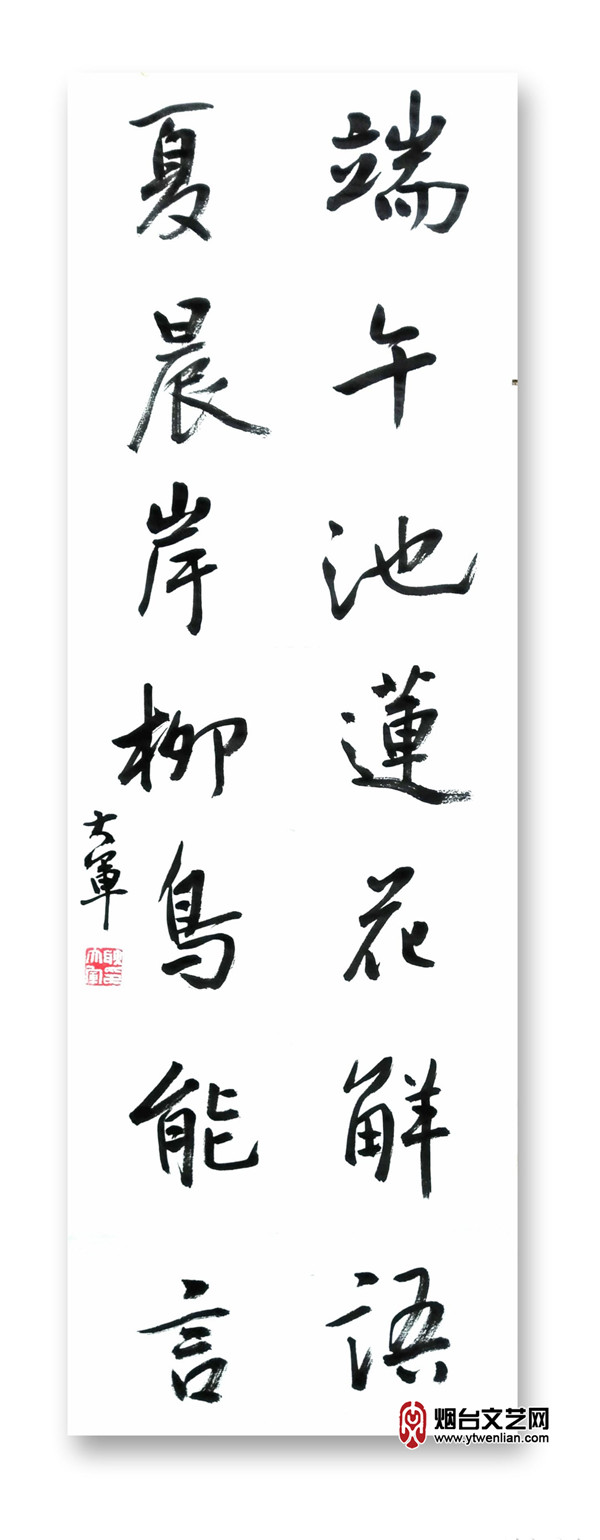 端午池蓮花解語
夏晨岸柳鳥能言
大軍
烟台文艺网
www.ytwenlian.com